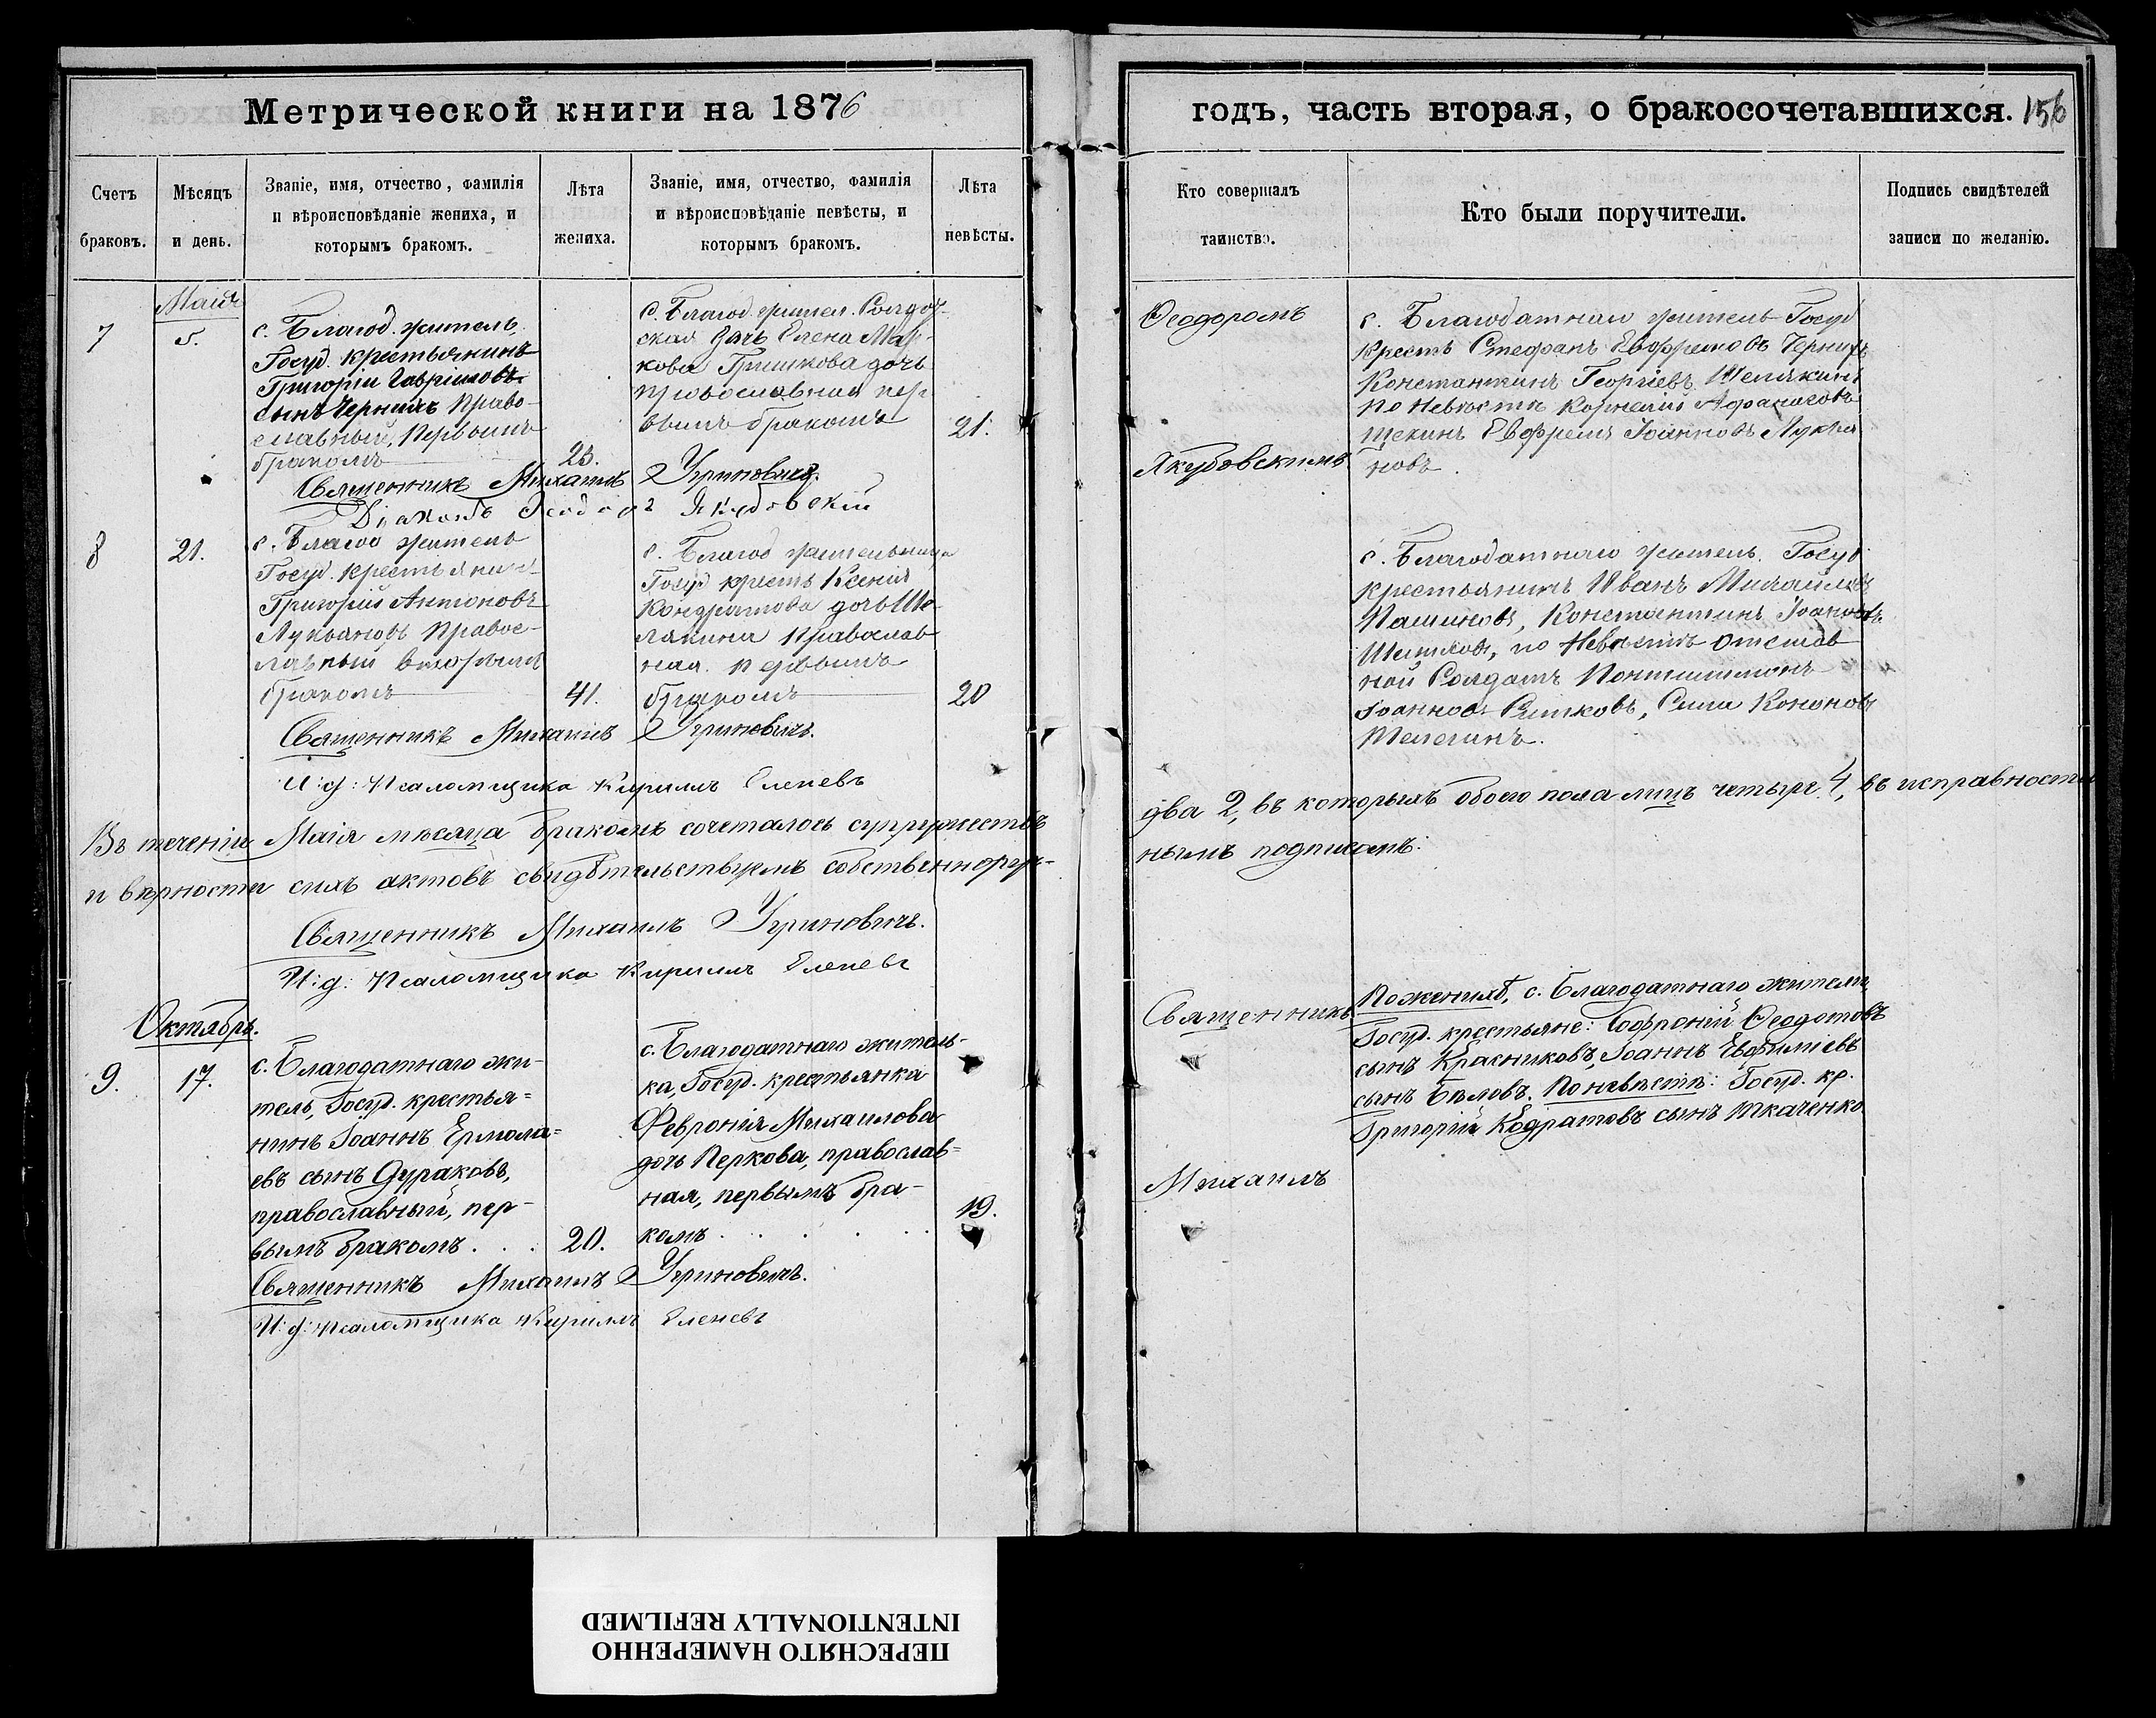 Метрической книги на 1876
годъ, часть вторая, о бракосочетавшихся. 156
Счетъ браковъ.
Мѣсяцъ и день.
Званіе, имя, отчество, фамилія
и вѣроисповѣданіе жениха, и
которымъ бракомъ.
Лѣта
жениха.
Званіе, имя, отчество, фамилія
и вѣроисповѣданіе невѣсты, и
которымъ бракомъ.
Лѣта
невѣсты.
Кто совершалъ
таинство.
Кто были поручители.
Подпись свидѣтелей
записи по желанію.
Маія
7
5.
с. Благод. житель,
Госуд. крестьянинъ
Григорій Гавріиловъ
сынъ Черныхъ Право-
славный, первымъ
бракомъ
23.
с. Благод. жител. Солдат-
ская дочь Елена Мар-
кова Гришкова дочь
православная пер-
вымъ бракомъ
21.
Ѳеодоромъ
Якубовскимъ
с. Благодатнаго житель Госуд
Крестъ Стефанъ Евфремовъ Черныхъ
Константинъ Георгіевъ Шелякинъ
по Невѣстѣ Корнелій
Евфремъ Іоанновъ Лукья
новъ.
Священникъ Михаилъ Угриновичъ.
Діаконъ Ѳеодоръ Якубовскій
8
21.
с. Благод житель
Госуд. крестьянин-
Григорій Антоновъ
Лукьяновъ Правос-
лавный вторымъ
бракомъ
41.
с. Благод жительница
Госуд крестъ Ксенія
Кондратова дочь Ше-
лякина Православ
ная. первымъ
бракомъ
20
с. Благодатнаго житель. Госуд
крестьянинъ Иванъ Михайловъ
Пашиновъ, Константинъ Іоановъ
по Невѣстѣ отстав
ной Солдатъ
Іоанновъ Сила Кононовъ
Телегинъ.
Священникъ Михаилъ Угриновичъ.
И: д: Псаломщика Кириллъ Еленевъ
Въ теченіи Маія мѣсяца бракомъ сочеталось супружествъ
два 2, въ которыхъ обоего пола лицъ четыре 4, въ исправности
и вѣрности сихъ актовъ свидѣтельствуемъ собственноруч-
нымъ подписомъ:
Священникъ Михаилъ Угриновичъ.
И: д: Псаломщика Кириллъ Еленевъ
Октябрь.
9.
17.
с. Благодатнаго жи-
тель, Госуд. крестья=
нинъ Іоаннъ Ермола=
евъ сынъ Дураковъ,
православный, пер-
вымъ бракомъ . . .
20.
с. Благодатнаго житель-
ка, Госуд. крестьянка
Февронія Михаилова
дочь Перкова, православ=
ная, первымъ бра-
комъ . . . . .
19.
Священникъ
Михаилъ
По женихѣ, с. Благодатнаго жители,
Госуд. крестьяне: Софроній Ѳеодотовъ
сынъ Красниковъ, Іоаннъ Евфиміевъ
сынъ Бѣловъ. По невѣстѣ: Госуд. кр.
Григорій Кодратовъ сынъ Ткаченко.
Священникъ Михаилъ Угриновичъ.
И: д: псаломщика Кириллъ Еленевъ
ПЕРЕСНЯТО НАМЕРЕННО
INTENTIONALLY REFILMED